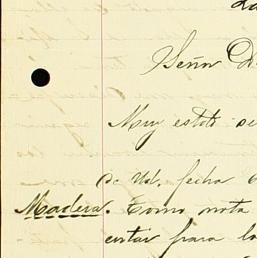 Señor D
Muy estdo se
de Ud. fecha 6
Madera. Como nota
estar para lo